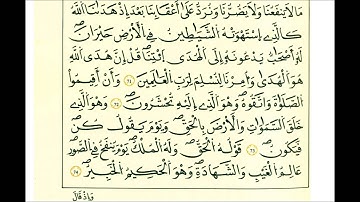 مَا لَا يَنفَعُنَا وَلَا يَضُرُّنَا وَنُرَدُّ عَلَىٰ أَعْقَابِنَا بَعْدَ إِذْ هَدَىٰنَا اللَّهُ
كَالَّذِي اسْتَهْوَتْهُ الشَّيَاطِينُ فِي الْأَرْضِ حَيْرَانَ
لَهُ أَصْحَابٌ يَدْعُونَهُ إِلَى الْهُدَى ائْتِنَا قُلْ إِنَّ هُدَى اللَّهِ
هُوَ الْهُدَىٰ وَأُمِرْنَا لِنُسْلِمَ لِرَبِّ الْعَالَمِينَ ۝ وَأَنْ أَقِيمُوا
الصَّلَوٰةَ وَاتَّقُوهُ وَهُوَ الَّذِي إِلَيْهِ تُحْشَرُونَ ۝ وَهُوَ الَّذِي
خَلَقَ السَّمَٰوَاتِ وَالْأَرْضَ بِالْحَقِّ وَيَوْمَ يَقُولُ كُن
فَيَكُونُ ۝ قَوْلُهُ الْحَقُّ وَلَهُ الْمُلْكُ يَوْمَ يُنفَخُ فِي الصُّورِ
عَالِمُ الْغَيْبِ وَالشَّهَادَةِ وَهُوَ الْحَكِيمُ الْخَبِيرُ
وَإِذْ قَالَ